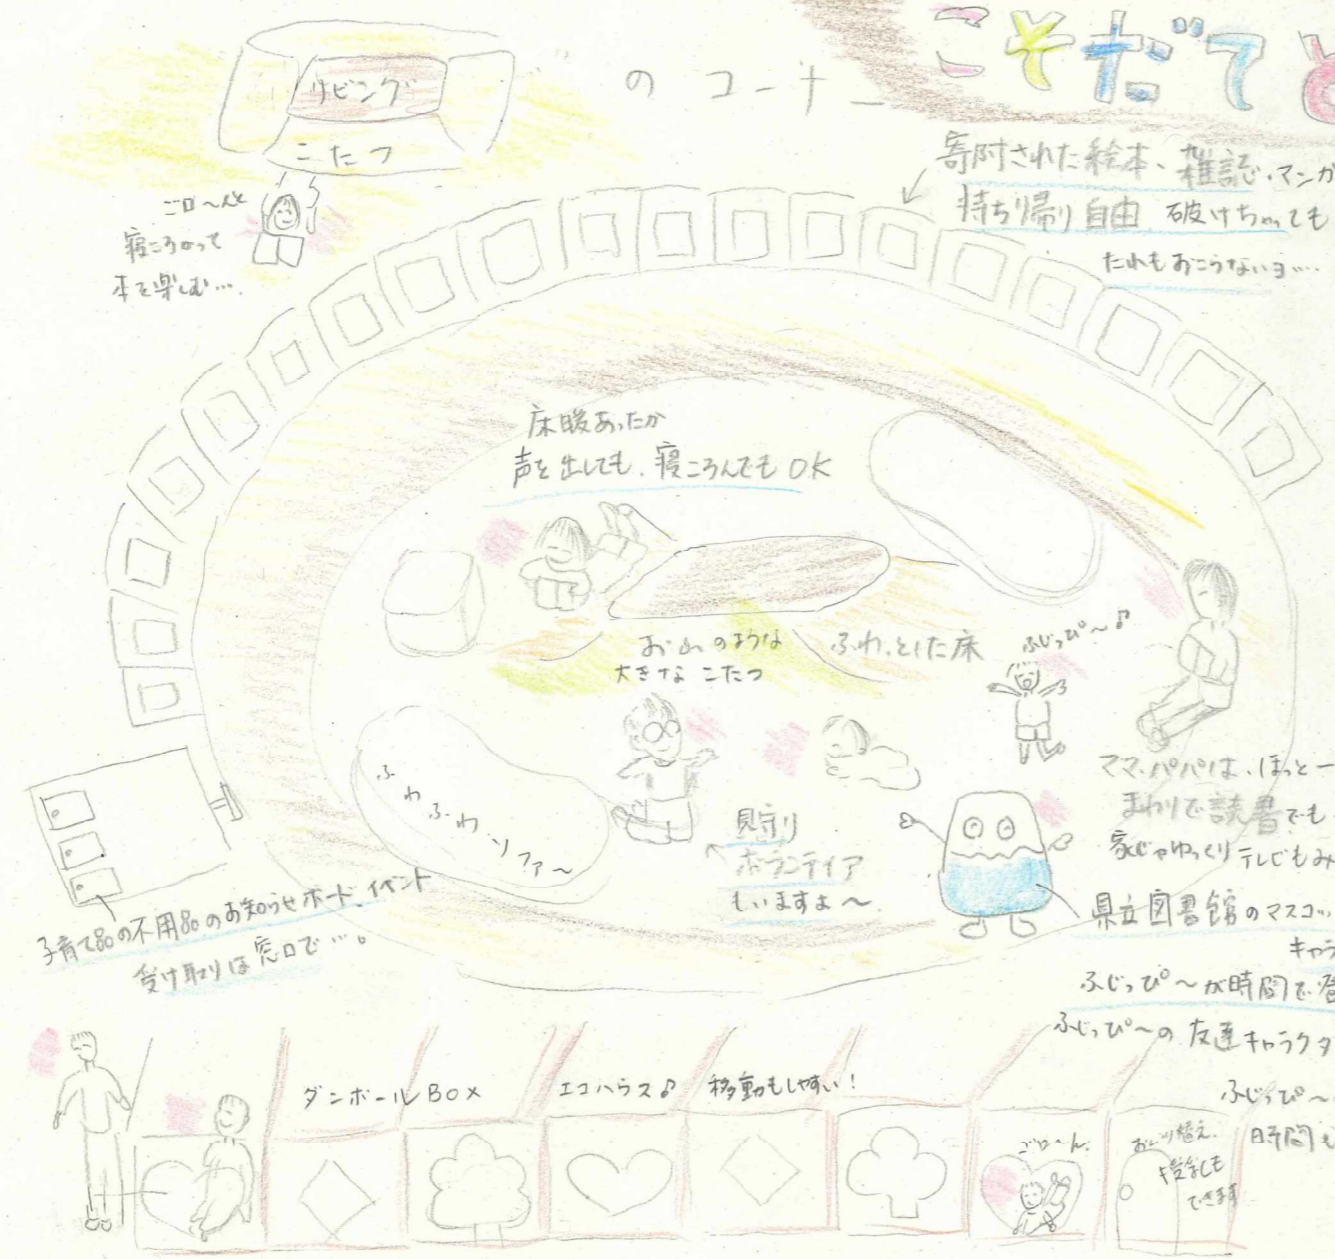 こそだて
リビング
のコーナー
こたつ
寄附された絵本、雑誌・マンガ
持ち帰り自由 破けちゃっても
だれもおこらないヨ….
ゴロ〜んと
寝ころがって
本を楽しむ….
床暖あったか
声を出しても、寝ころんでもOK
お山のような
大きなこたつ
ふわっとした床
ふじっぴ〜♪
ふわふわソファ〜
見守り
ボランティア
もいますよ〜
ママ、パパは、ほっと一
まわりで読書でも
家じゃゆっくりテレビもみ
県立図書館のマスコッ
キャラ
ふじっぴ〜が時間で登
ふじっぴ〜の友達キャラクタ
ふじっぴ〜
時間も
子育て品の不用品のお知らせボード、イベント
受け取りは窓口で…。
ダンボールBOX
エコハウス♪
移動もしやすい!
ゴロ〜ん
おムツ替え、
授乳も
できます